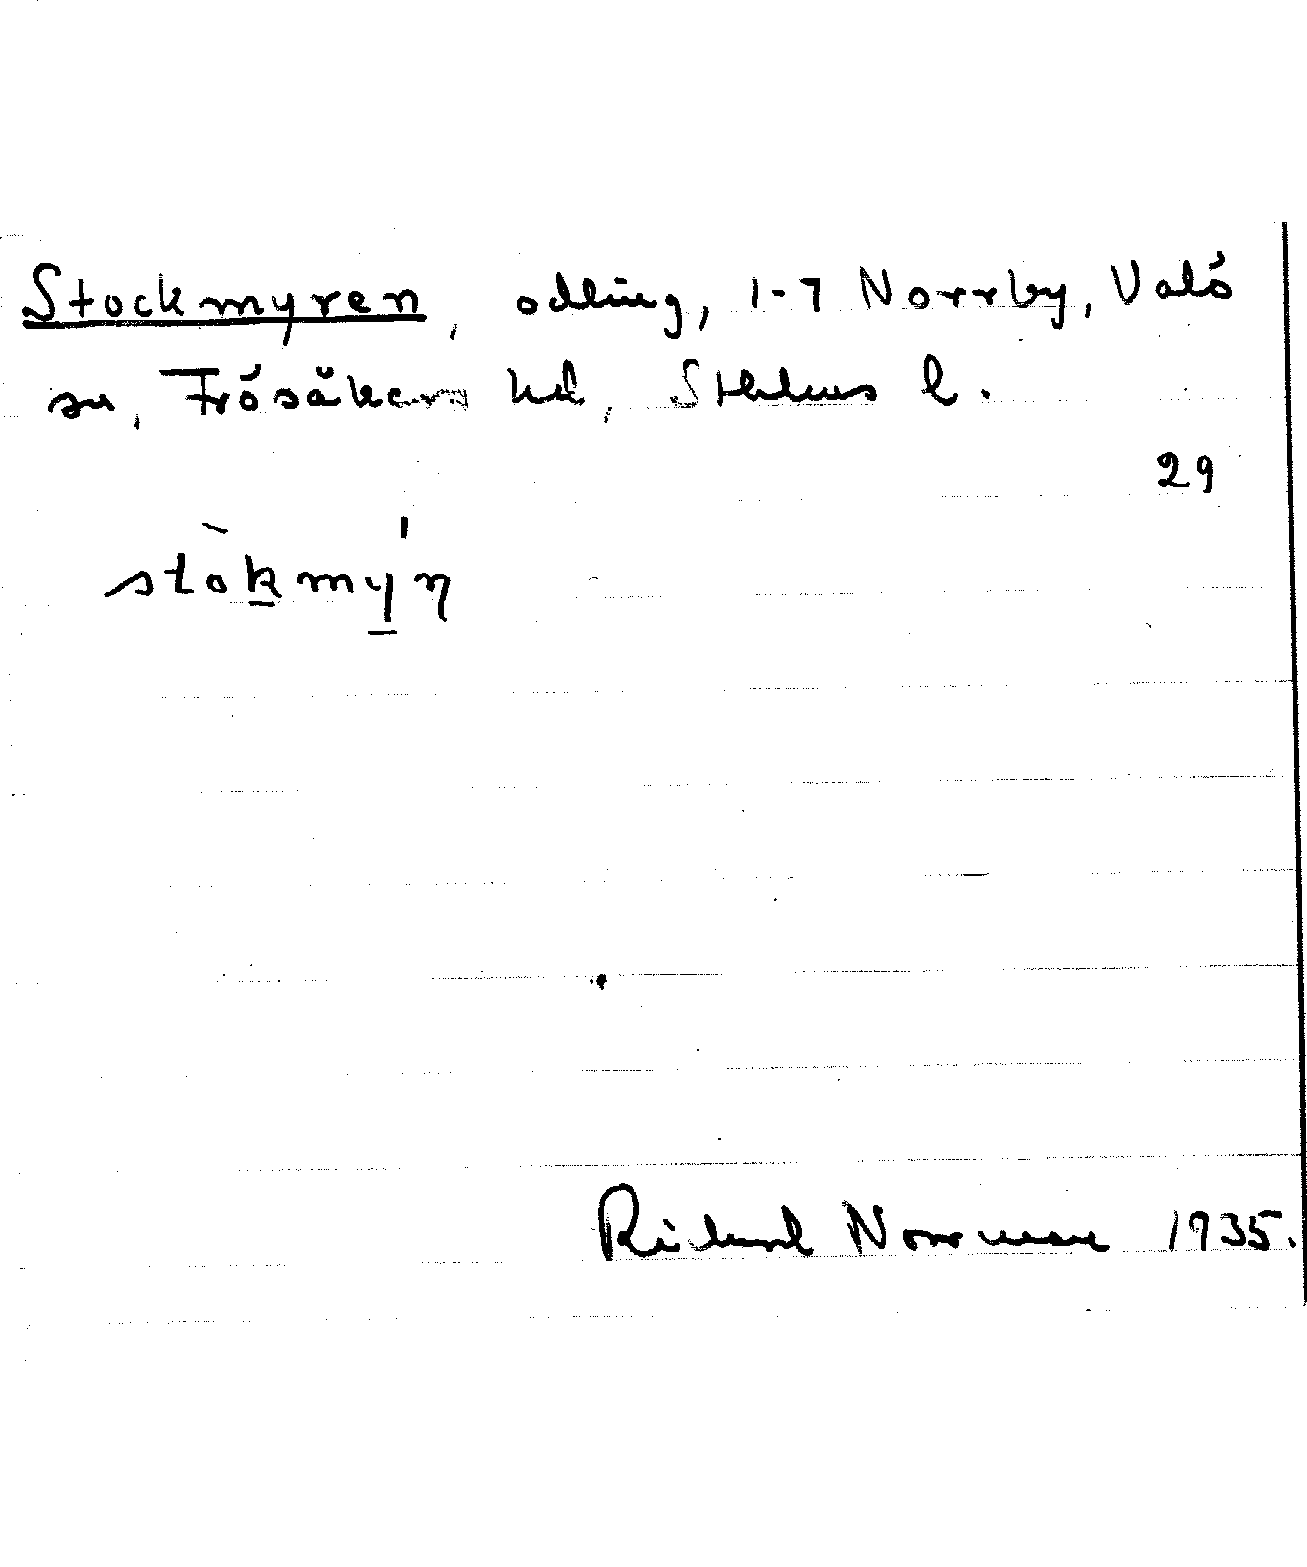 Stockmyren, odling, 1-7 Norrby, Valö
sn, Frösåkers hd, Sthlms l.
29
stòkmýn
Richard Norrman 1935.